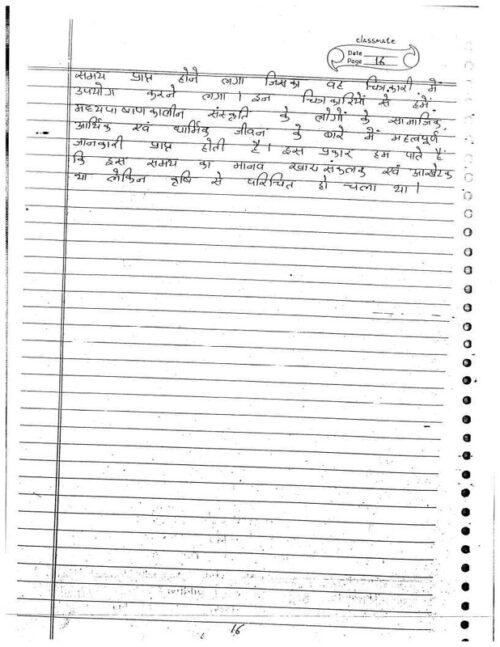 classmate
Date
Page 16
समय प्राप्त होने लगा जिसका वह चित्रकारी में
उपयोग करने लगा। इन चित्रकारियों से हमें
मध्यपाषाणकालीन संस्कृति के लोगों के सामाजिक,
आर्थिक एवं धार्मिक जीवन के बारे में महत्वपूर्ण
जानकारी प्राप्त होती है। इस प्रकार हम पाते हैं
कि इस समय का मानव खाद्य संकलक एवं आखेटक
था लेकिन कृषि से परिचित हो चला था।
16